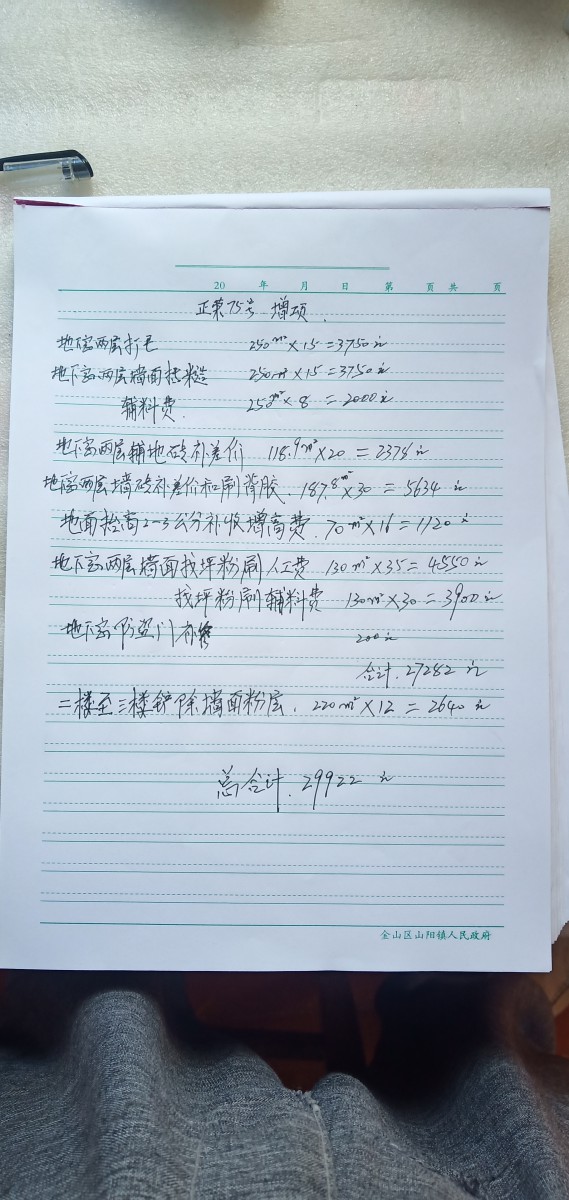 20 年 月 日 第 页 共 页
正荣75号 增项.
地下室两层打毛 250m²×15=3750元
地下室两层墙面拮糙 250m²×15=3750元
辅料费. 250m²×8=2000元
地下室两层铺地砖补差价 118.9m²×20=2378元
地下室两层墙砖补差价和刷背胶. 187.8m²×30=5634元
地面抬高2-3公分补收增高费. 70m²×16=1120元
地下室两层墙面找坪粉刷人工费 130m²×35=4550元
找坪粉刷辅料费 130m²×30=3900元
地下室防盗门补修 200元
合计. 27282元
二楼至三楼铲除墙面粉层. 220m²×12=2640元
总合计. 29922元
金山区山阳镇人民政府